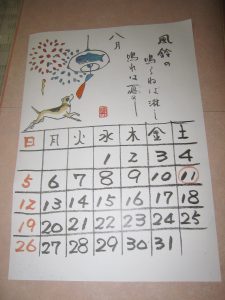 風鈴の
鳴らねば淋し
鳴れば憂し
八月
日 月 火 水 木 金 土
1 2 3 4
5 6 7 8 9 10 11
12 13 14 15 16 17 18
19 20 21 22 23 24 25
26 27 28 29 30 31